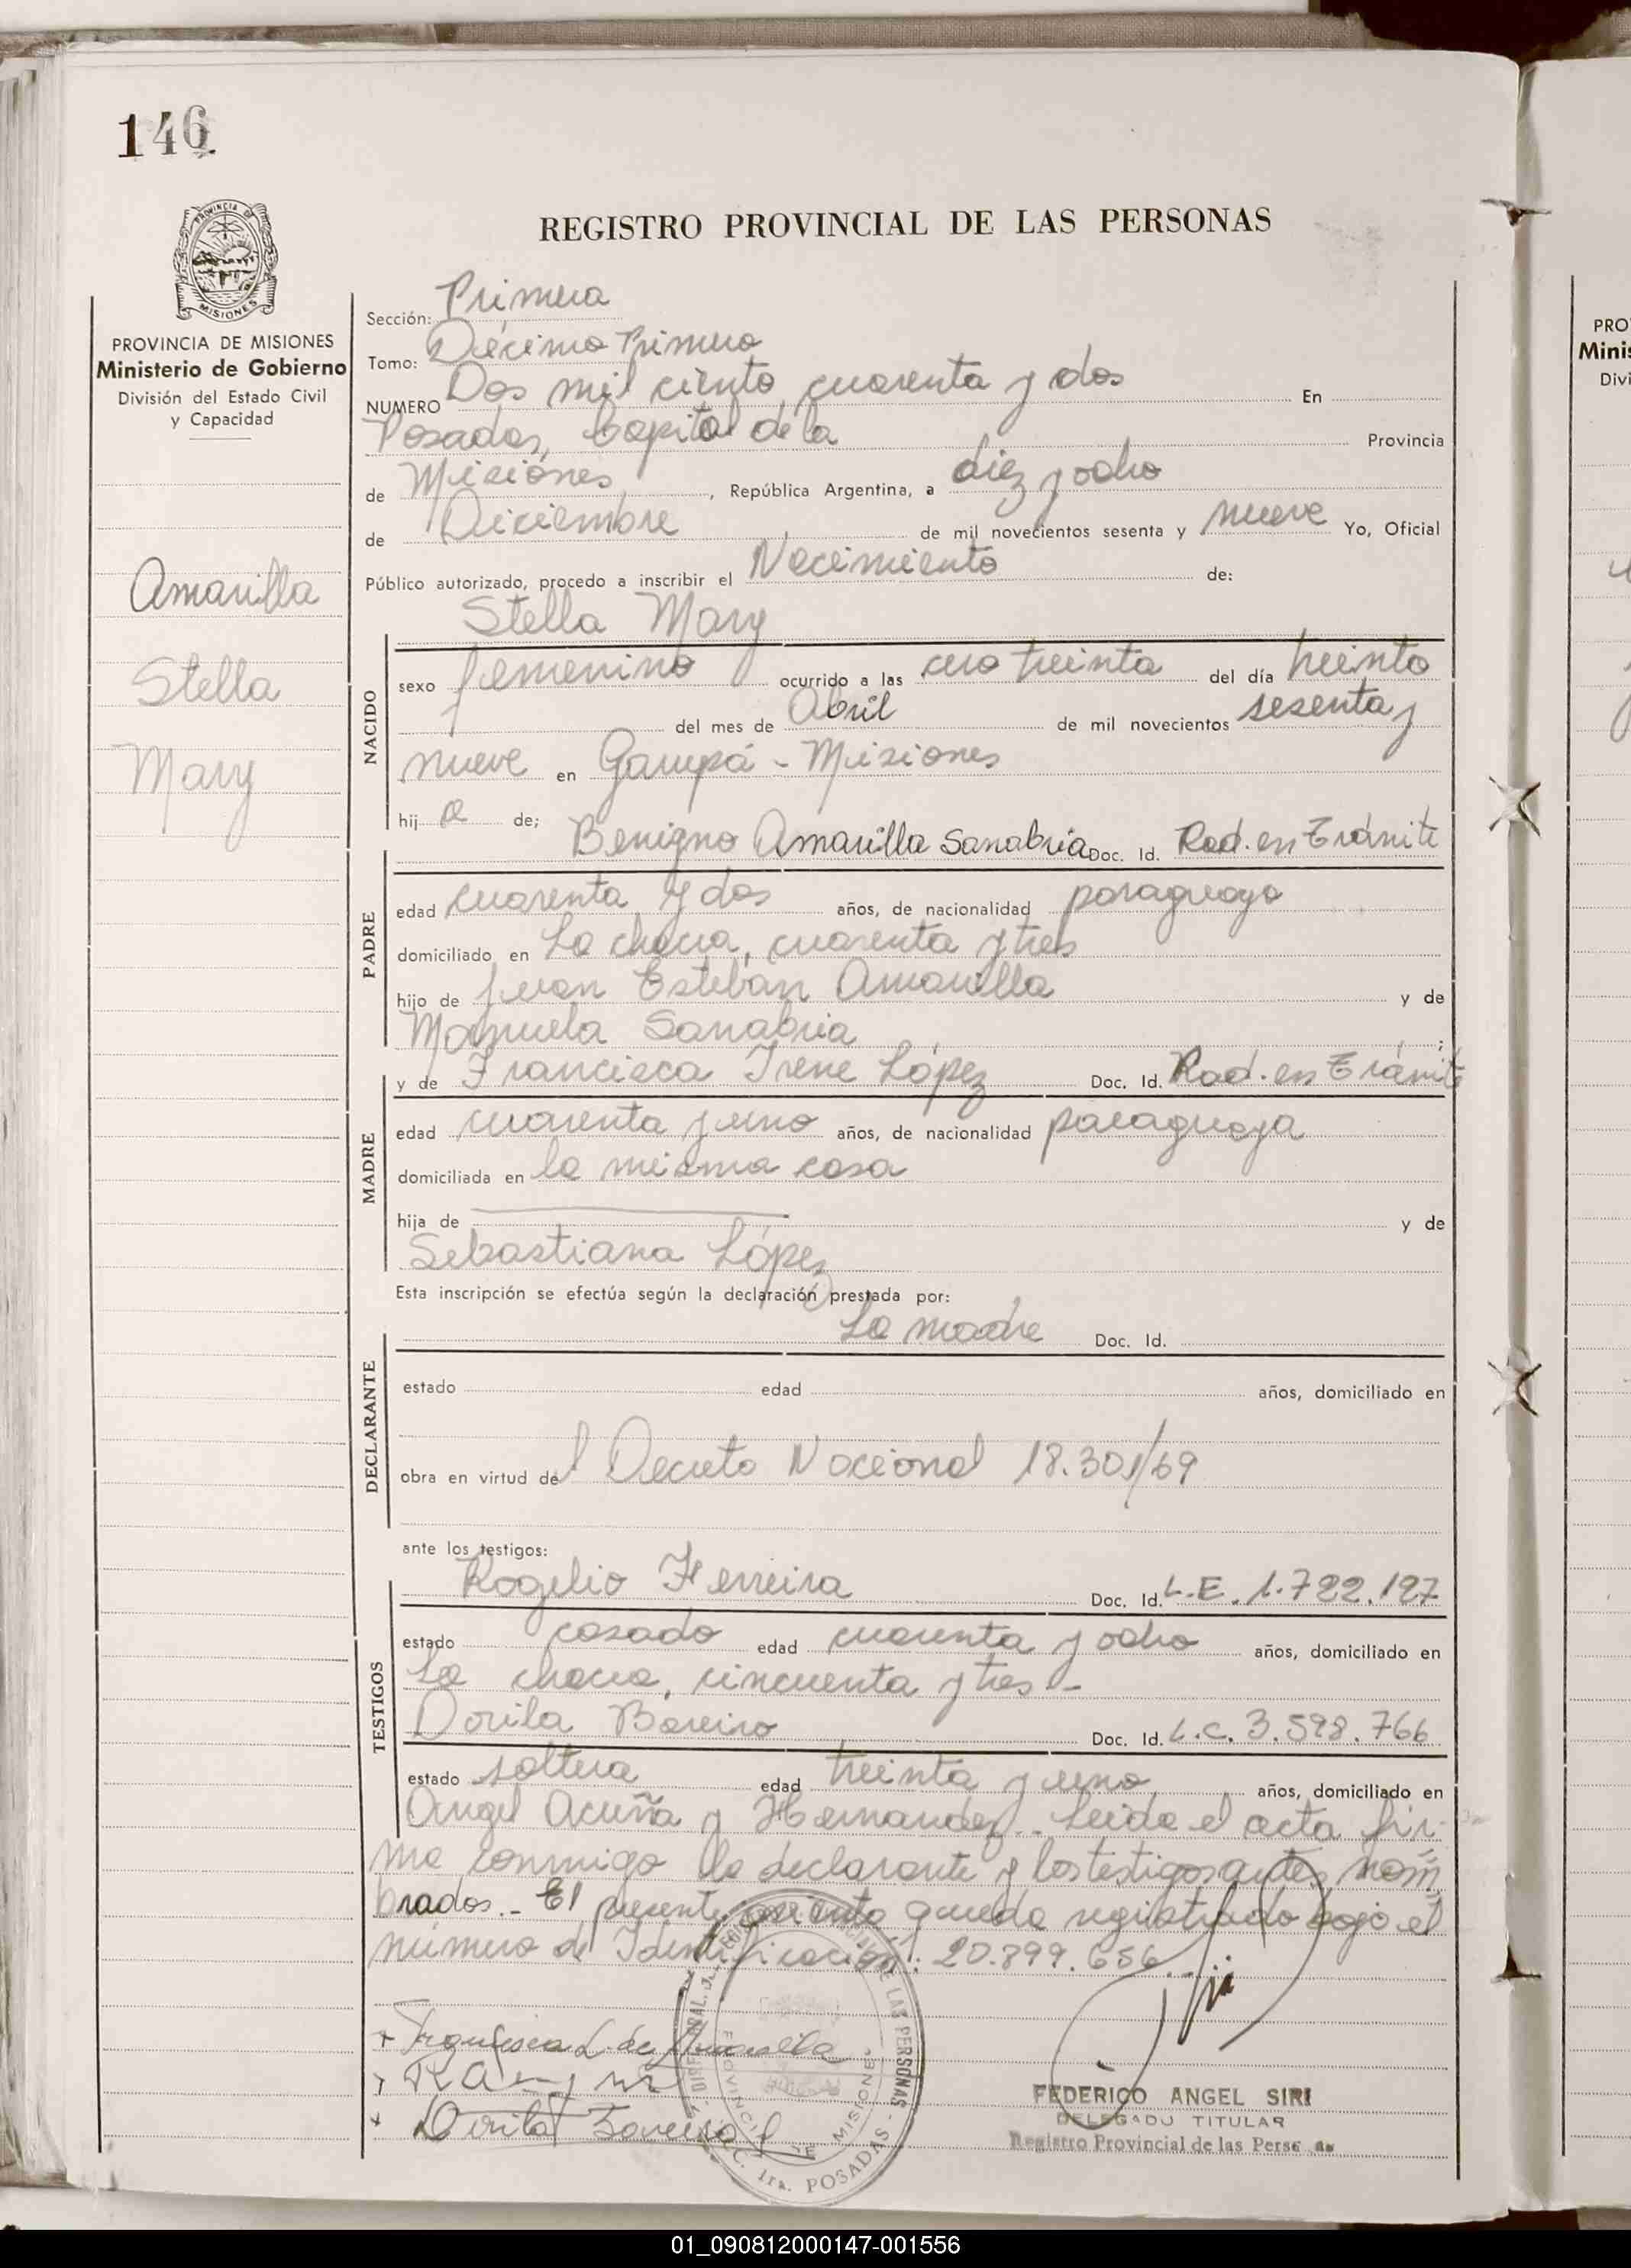 146
REGISTRO PROVINCIAL DE LAS PERSONAS
PROVINCIA DE MISIONES
Ministerio de Gobierno
División del Estado Civil
y Capacidad
Amarilla
Stella
Mary
Sección: Primera
Tomo: Décimo Primero
NUMERO Dos mil ciento cuarenta y dos En
Posadas, Capital de la Provincia
de Misiones, República Argentina, a diez y ocho
de Diciembre de mil novecientos sesenta y nueve Yo, Oficial
Público autorizado, procedo a inscribir el Nacimiento de:
Stella Mary
NACIDO
sexo femenino ocurrido a las cero treinta del día treinta
del mes de Abril de mil novecientos sesenta y
nueve en Garupá - Misiones
hij a de;
Benigno Amarilla Sanabria Doc. Id. Rad. en Trámite
PADRE
edad cuarenta y dos años, de nacionalidad paraguayo
domiciliado en La chacra, cuarenta y tres
hijo de Juan Esteban Amarilla y de
Manuela Sanabria ;
y de Francisca Irene López Doc. Id. Rad. en Trámite
MADRE
edad cuarenta y uno años, de nacionalidad paraguaya
domiciliada en la misma casa
hija de y de
Sebastiana López
Esta inscripción se efectúa según la declaración prestada por:
La madre Doc. Id.
DECLARANTE
estado edad años, domiciliado en
obra en virtud del Decreto Nacional 18.301/69
ante los testigos:
Rogelio Ferreira Doc. Id. L.E. 1.722.127
TESTIGOS
estado casado edad cuarenta y ocho años, domiciliado en
La chacra, cincuenta y tres -
Dorila Bareiro Doc. Id. L.C. 3.598.766
estado soltera edad treinta y uno años, domiciliado en
Angel Acuña y Hernandez.- Leida el acta fir-
ma conmigo la declarante y los testigos antes nom
brados.- El presente queda registrado bajo el
número de Identificación: 20.899.656.-
Francisca L. de Amarilla
Dorila Bareiro
LAS PERSONAS
PROVINCIA DE MISIONES
SEC. 1ra. POSADAS
FEDERICO ANGEL SIRI
DELEGADO TITULAR
Registro Provincial de las Perse as
PRO
Minis
Divi
01_090812000147-001556